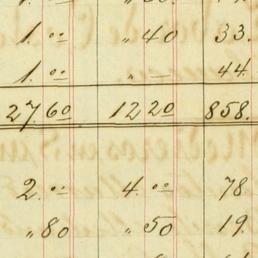 1.00 " 40 33.
1.00 " — 44.
27.60 12.20 858.
2.00 4.00 78
" 80 " 50 19.